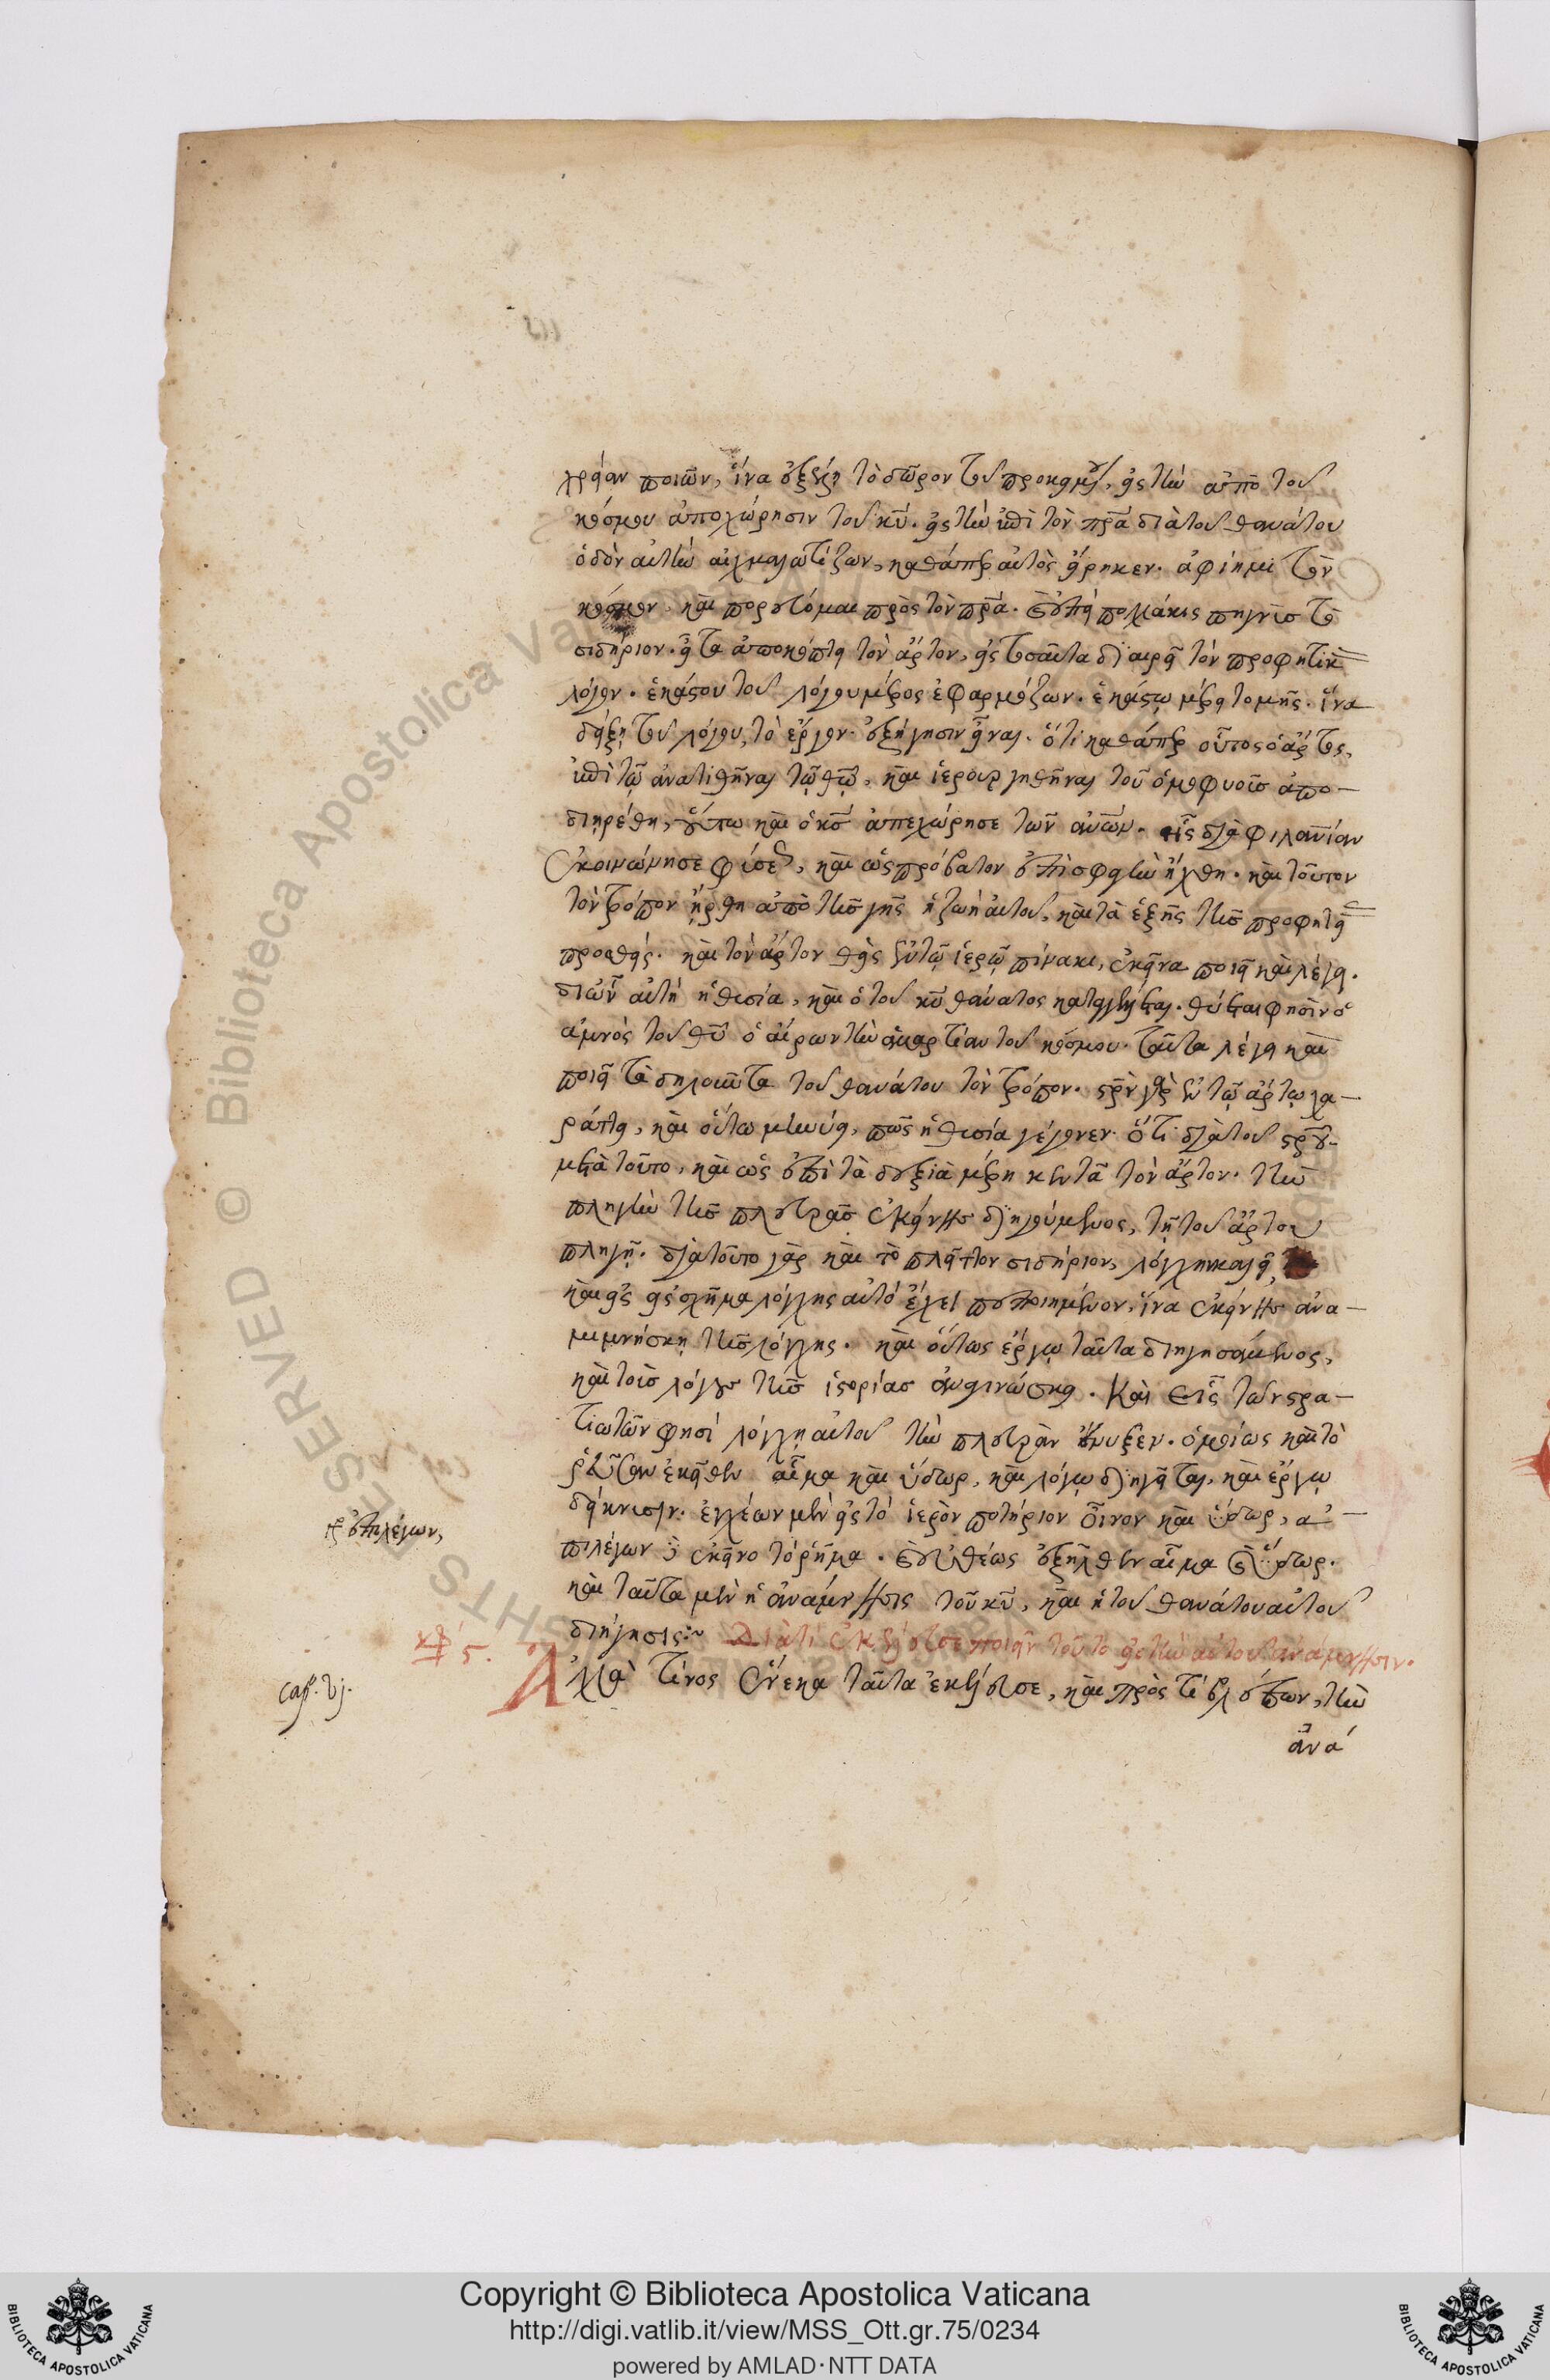 γραίαν ποιῶν, ἵνα δείξῃ τὸ δῶρον τοῦ προκειμένου, εἰς τὴν ἀπὸ τοῦ
κόσμου ἀποχώρησιν τοῦ κυ̅. εἰς τὴν ἐπὶ τὸν πρ̅α διὰ τοῦ θανάτου
ὁδὸν αὐτὴν καθάπερ αὐτὸς εἴρηκεν. ἀφίημι τὸν
κόσμον, καὶ πορεύομαι πρὸς τὸν πρ̅α. πολλάκις πηγνὺς τὸ
σιδήριον. εἶτα ἀποκόπτει τὸν ἄρτον, εἰς τοσαῦτα διαιρεῖ τὸν προφητικὸν
λόγον. ἑκάστου τοῦ λόγου μέρος ἐφαρμόζων. ἑκάστῳ μέρει τομῆς. ἵνα
δείξῃ τοῦ λόγου, τὸ ἔργον ἐξήγησιν εἶναι. ὅτι καθάπερ οὗτος ὁ ἄρτος,
ἐπὶ τῷ ἀνατιθῆναι τῷ θω̅, καὶ ἱερουργηθῆναι τοῦ ὁμοφυοῦς ἀπο-
διῃρέθη, οὕτω καὶ ὁ κσ̅ ἀπεχώρησε τῶν ἀν̅ων. οἷς διὰ φιλαν̅ίαν
ἐκοινώνησε φύσεως, καὶ ὡς πρόβατον ἐπὶ σφαγὴν ἤχθη. καὶ τοῦτον
τὸν τρόπον ἤρθη ἀπὸ τῆς γῆς ἡ ζωὴ αὐτοῦ, καὶ τὰ ἑξῆς τῆς προφητείας
προσθείς. καὶ τὸν ἄρτον θεὶς ἐν τῷ ἱερῷ πίνακι, ἐκεῖνα ποιεῖ καὶ λέγει.
δι' ὧν αὐτὴ ἡ θυσία, καὶ ὁ τοῦ κυ̅ θάνατος καταγγέλλεται. θύεται φησὶν ὁ
ἀμνὸς τοῦ θυ̅ ὁ αἴρων τὴν ἁμαρτίαν τοῦ κόσμου. ταῦτα λέγει καὶ
ποιεῖ τὰ δηλοῦντα τοῦ θανάτου τὸν τρόπον. σρ̅ὸν γὰρ ἐν τῷ ἄρτῳ χα-
ράττει, καὶ οὕτω μηνύει, πῶς ἡ θυσία γέγονεν. ὅτι διὰ τοῦ σρ̅οῦ.
μετὰ τοῦτο, καὶ ὡς ἐπὶ τὰ δεξιὰ μέρη κεντᾷ τὸν ἄρτον. τὴν
πληγὴν τῆς πλευρᾶς ἐκείνης διηγούμενος, τῇ τοῦ ἄρτου
πληγῇ. διὰ τοῦτο γὰρ καὶ τὸ πλῆττον σιδήριον, λόγχην καλεῖ,
καὶ εἰς σχῆμα λόγχης αὐτὸ ἔχει πεποιημένον, ἵνα ἐκείνης ἀνα-
μιμνήσκῃ τῆς λόγχης. καὶ οὕτως ἔργῳ ταῦτα διηγησάμενος,
καὶ τοὺς λόγους τῆς ἱστορίας ἀναγινώσκει. Καὶ εἷς τῶν στρα-
τιωτῶν φησὶ λόγχῃ αὐτοῦ τὴν πλευρὰν ἔνυξεν. ὁμοίως καὶ τὸ
ῥεῦσαν ἐκεῖθεν αἷμα καὶ ὕδωρ, καὶ λόγῳ διηγεῖται, καὶ ἔργῳ
δείκνυσιν. ἐγχέων μὲν εἰς τὸ ἱερὸν ποτήριον οἶνον καὶ ὕδωρ,
ἐπιλέγων,
πιλέγων δὲ ἐκεῖνο τὸ ῥῆμα. εὐθέως ἐξῆλθεν αἷμα καὶ ὕδωρ.
καὶ ταῦτα μὲν ἡ ἀνάμνησις τοῦ κυ̅, καὶ ἡ τοῦ θανάτου αὐτοῦ
διήγησις:~ Διατί ἐκέλευσε ποιεῖν τοῦτο εἰς τὴν αὐτοῦ ἀνάμνησιν.
κεφ ϛ.
cap. vj.
Ἀλλὰ τίνος ἕνεκα ταῦτα ἐκέλευσε, καὶ πρὸς τί βλέπων, τὴν
ἀνά
Copyright © Biblioteca Apostolica Vaticana
http://digi.vatlib.it/view/MSS_Ott.gr.75/0234
powered by AMLAD·NTT DATA
BIBLIOTECA APOSTOLICA VATICANA
BIBLIOTECA APOSTOLICA VATICANA